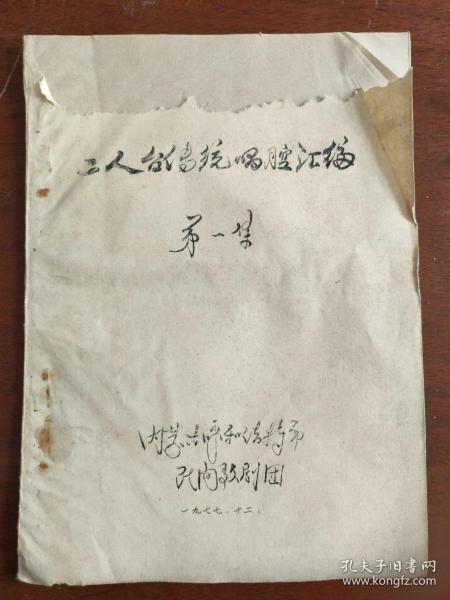 二人台传统唱腔汇编
第一集
内蒙古呼和浩特市
民间歌剧团
一九七七.十二.
孔夫子旧书网
www.kongfz.com